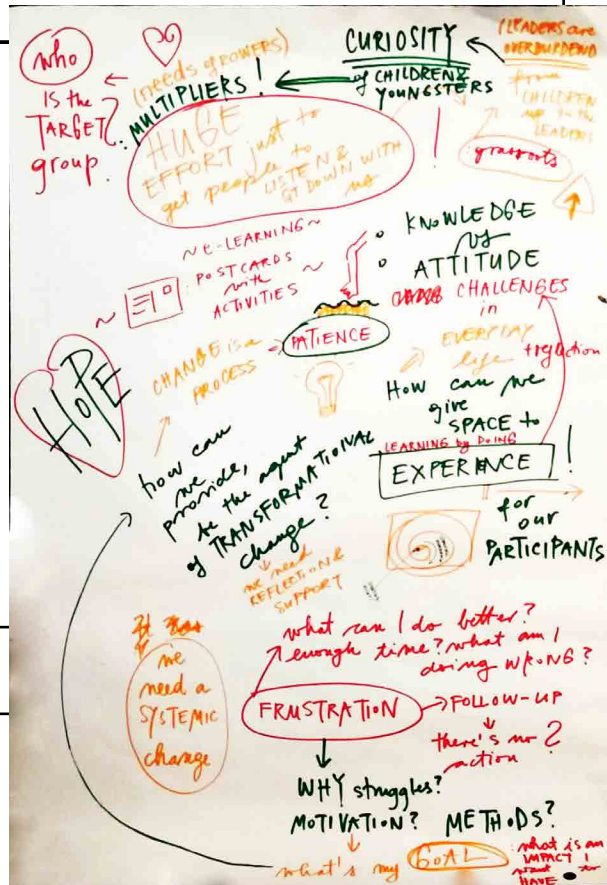 who
is the
TARGET
group
(needs of ROWERS)
MULTIPLIERS!
CURIOSITY
of CHILDREN &
YOUNGSTERS
!
LEADERS are
OVERBURDEND
from
CHILDREN
up to the
LEADERS
grassroots
HUGE
EFFORT just to
get people to
LISTEN &
SIT DOWN WITH
us
~ e-LEARNING ~
~ POSTCARDS ~
with
ACTIVITIES
KNOWLEDGE
vs
ATTITUDE
CHALLENGES
in
EVERYDAY
life
+ reflection
PATIENCE
CHANGE is a
PROCESS
HOPE
How can we
give
SPACE to
LEARNING by DOING
EXPERIENCE !
for
our
PARTICIPANTS
how can
we
provide,
be the agent
of TRANSFORMATIONAL
change?
we need
REFLECTION &
SUPPORT
we
need a
SYSTEMIC
change
what can I do better?
enough time? what am I
doing WRONG?
FRUSTRATION
FOLLOW-UP
there's no ?
action
WHY struggles?
MOTIVATION? METHODS?
what's my GOAL
: what is an
IMPACT I
want to
HAVE